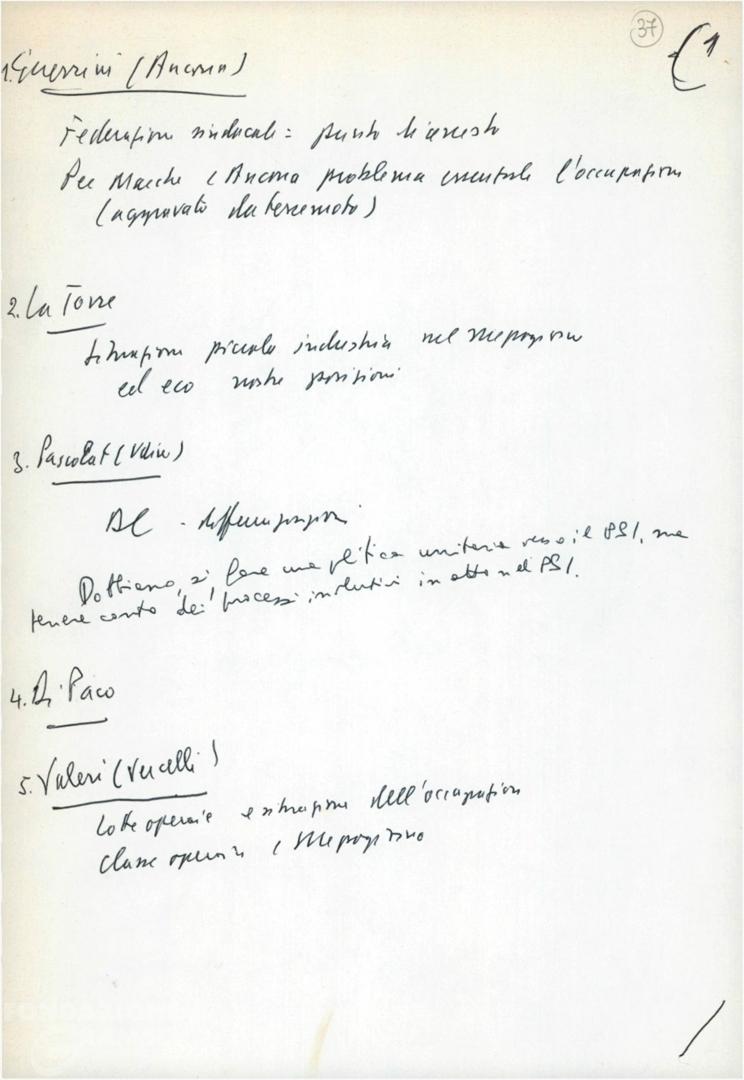 37
1
1. Guerrini (Ancona)
Federazione sindacale = punto d'arresto
Per Marche e Ancona problema essenziale l'occupazione
(aggravato da terremoto)
2. La Torre
Situazione piccola industria nel Mezzogiorno
ed eco nostre posizioni
3. Pascolat (Udine)
DC - differenziazioni
Dobbiamo, sì, fare una politica unitaria verso il PSI, ma
tenere conto dei processi involutivi in atto nel PSI.
4. Di Paco
5. Valeri (Vercelli)
Lotte operaie e situazione dell'occupazione
Classe operaia e Mezzogiorno